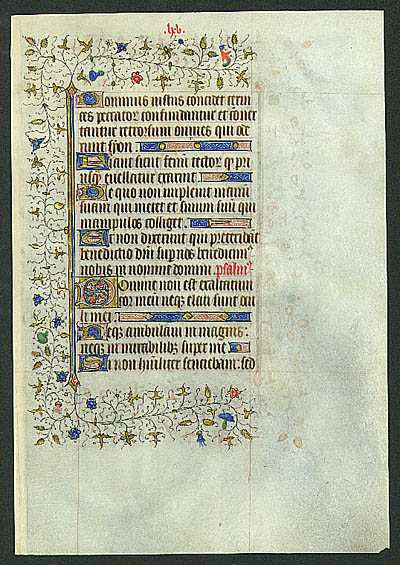 .lxv.
Dominus iustus concidet cervi
ces peccatorꝝ confundantur et conver
tantur retrorsum omnes qui ode
runt syon.
Fiant sicut fenū tectorꝝ qd̄ pri
usq̄ evellatur exaruit.
De quo non implevit manū
suam qui metet et sinum suū qui
manipulos colliget.
Et non dixerunt qui preteribāt
benedictio dn̄i sup vos benediximꝰ
vobis in nomine domini. psalmꝰ
Domine non est exaltatum
cor meū neqꝫ elati sunt ocu
li mei
Neqꝫ ambulavi in magnis:
neqꝫ in mirabilibꝫ super me
Si non humiliter sentiebam: sed